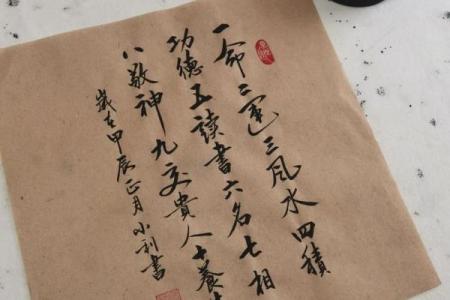 一命二運三风水四積
功德五讀書六名七相
八敬神九交貴人十養
歲在甲辰正月小利書